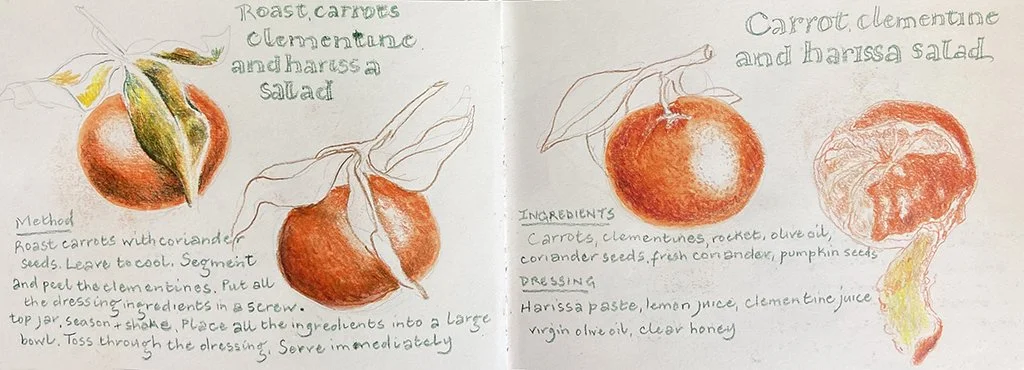 Roast, carrots
clementine
and harissa
salad
Method
Roast carrots with coriander
seeds. Leave to cool. Segment
and peel the clementines. Put all
the dressing ingredients in a screw.
top jar, season + shake. Place all the ingredients into a large
bowl. Toss through the dressing. Serve immediately
Carrot, clementine
and harissa salad
INGREDIENTS
Carrots, clementines, rocket, olive oil,
coriander seeds, fresh coriander, pumpkin seeds
DRESSING
Harissa paste, lemon juice, clementine juice
virgin olive oil, clear honey